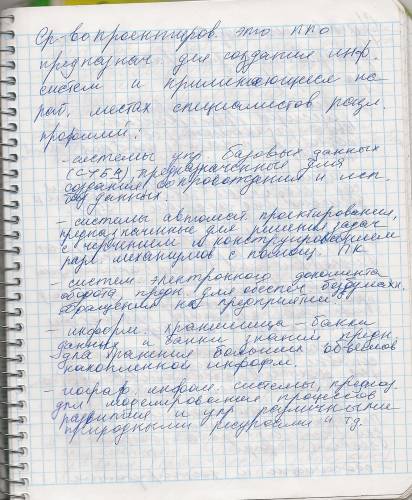 Ср-во проектиров. это ППО
предназнач для создания инф.
систем и применяющиеся на
раб. местах специалистов разл.
профилей:
- системы упр базовых данных
(СУБД), предназначенные для
создания, сопровождения и исп.
баз данных.
- системы автомат. проектирования,
предназначенные для решения задач
с черчением и конструированием
разл. механизмов с помощ. ПК
- систем электронного документа
оборота предн. для обеспеч безбумажн.
обращения на предприятии
- информ. хранилища - банки
данных и банки знаний предн.
для хранения больших объемов
накопленной информ.
- географ. информ. системы, предназ.
для моделирования процессов
развития и упр различными
природными ресурсами и тд.